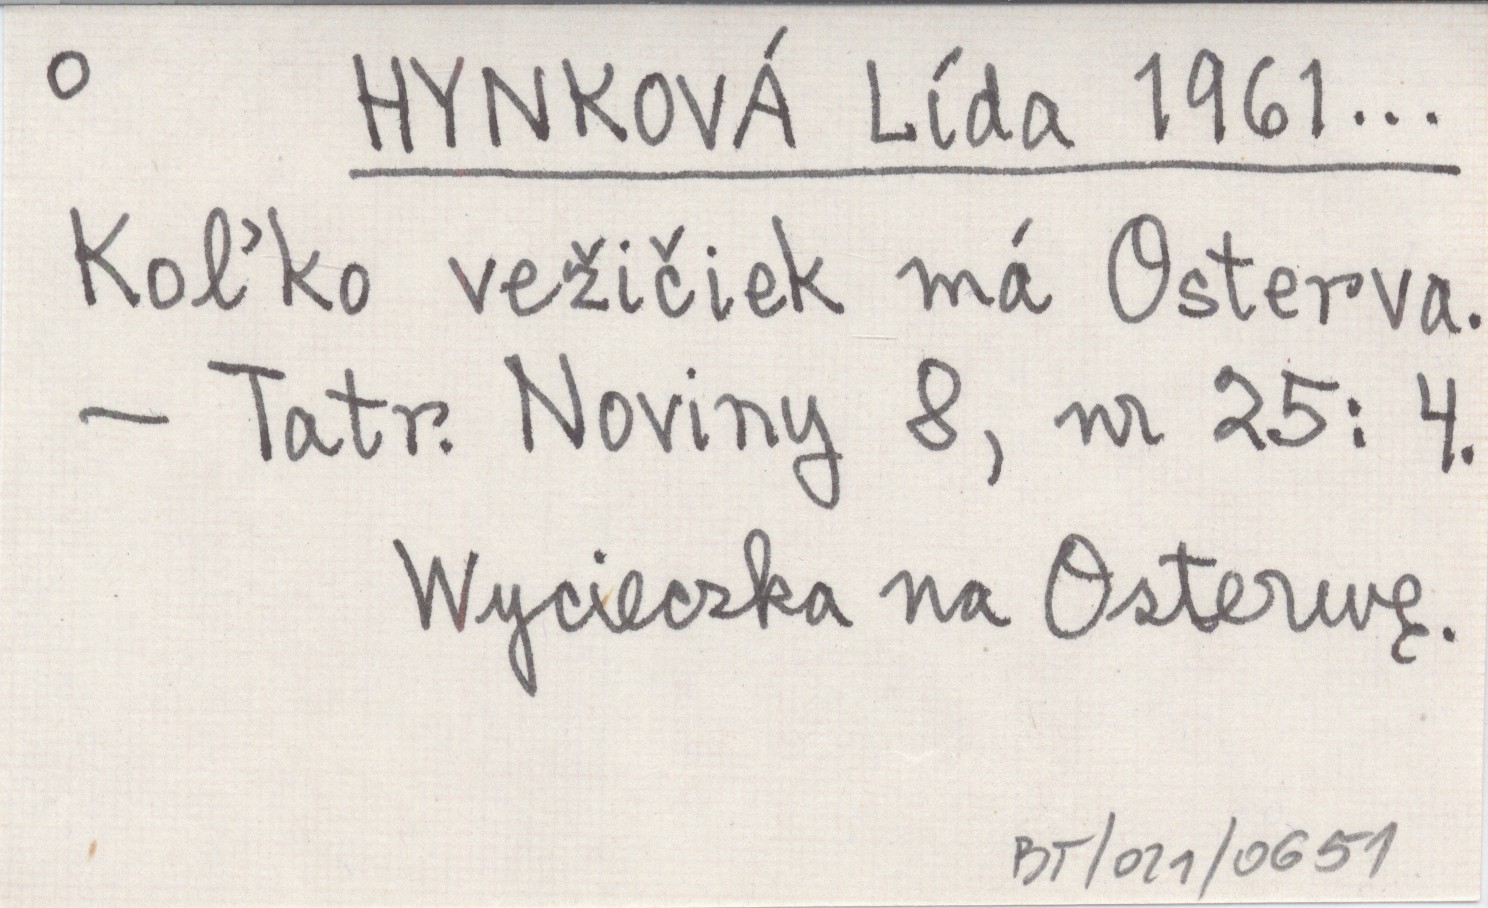 o HYNKOVÁ Lída 1961...
Koľko vežičiek má Osterva.
— Tatr. Noviny 8, nr 25: 4.
Wycieczka na Osterwę.
BT/021/0651